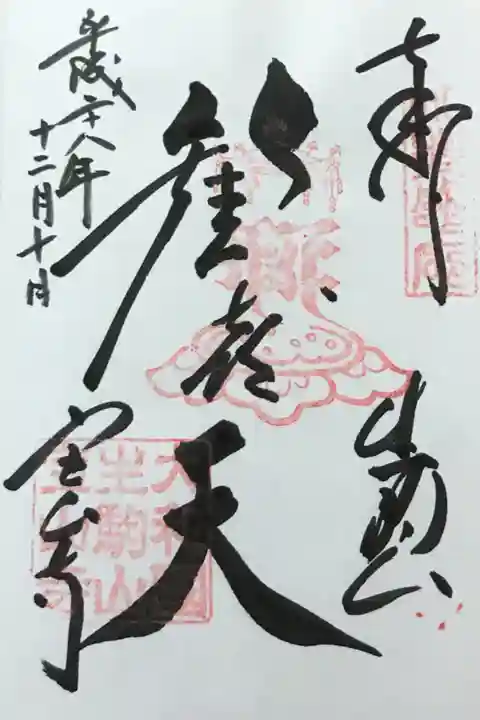 奉拝
生駒山
歓喜天
宝山寺
平成二十八年
十二月十日
大和國
生駒山
宝山寺